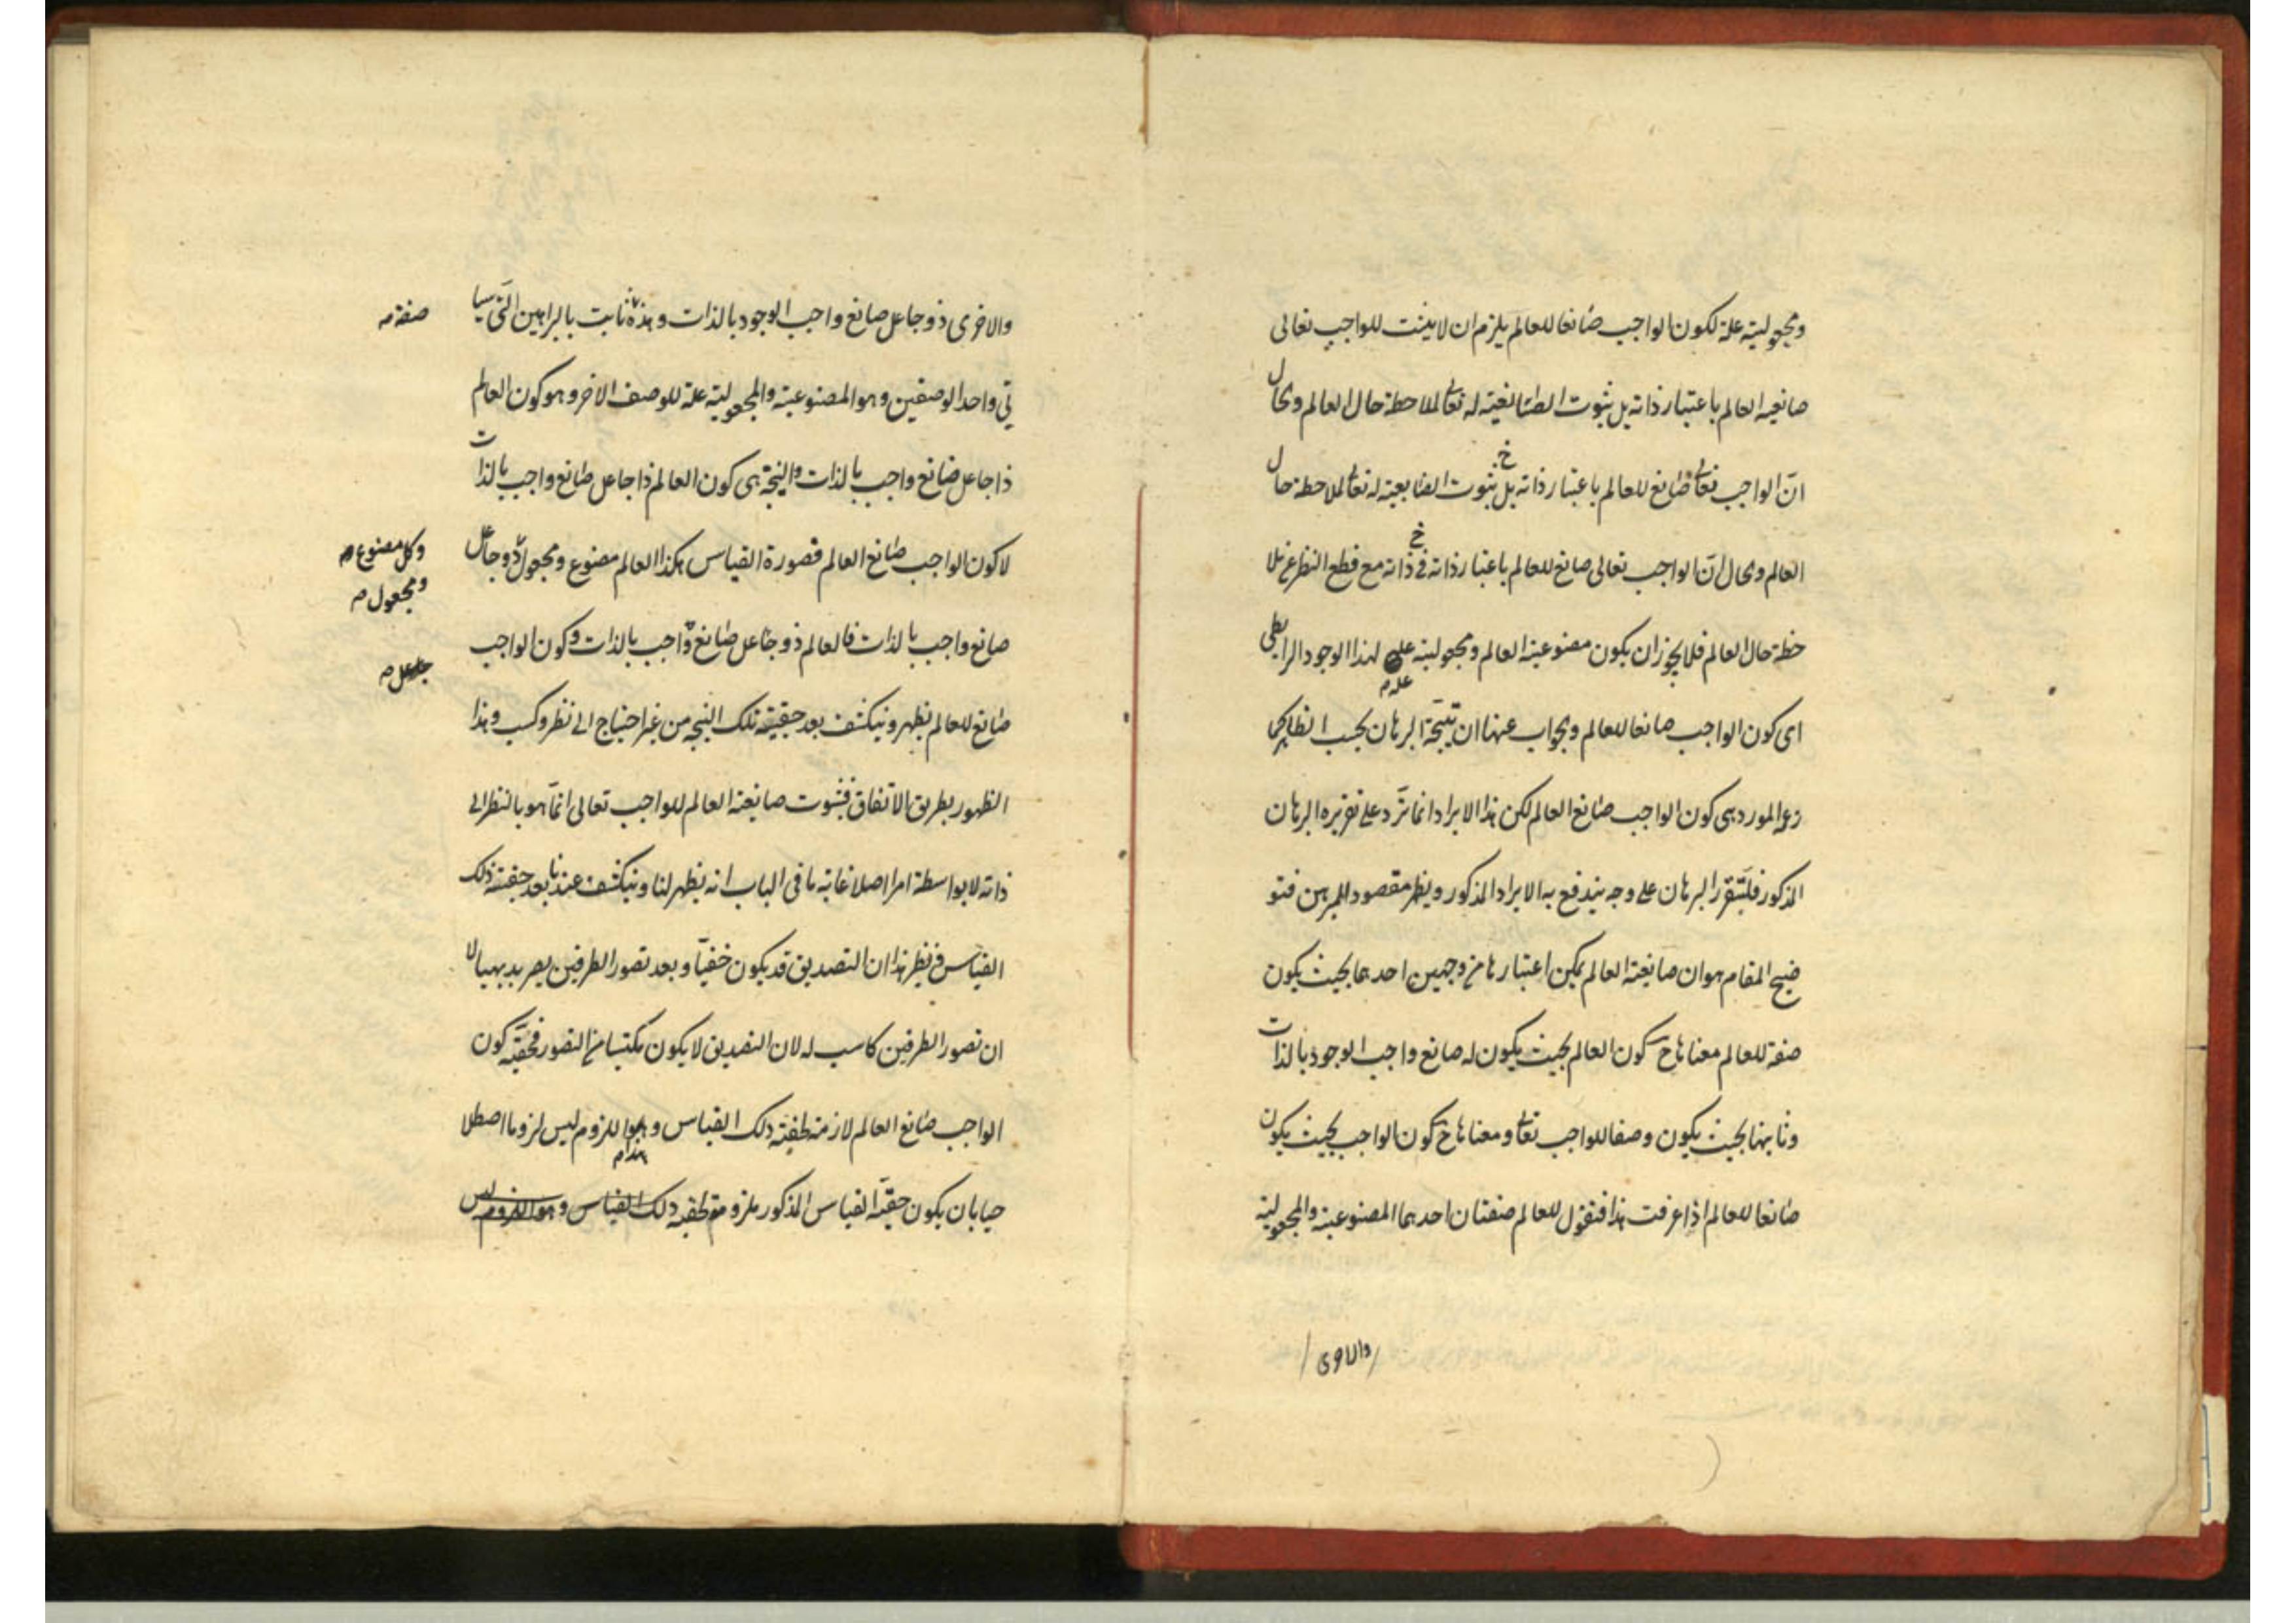 ومجعوليته علة لكون الواجب صانعا للعالم يلزم ان لا يثبت للواجب تعالى
صانعية العالم باعتبار ذاته بل بثبوت الصانعية له تعالى لملاحظة حال العالم ومحال
ان الواجب تعالى صانع للعالم باعتبار ذاته بل بثبوت الصانعية له تعالى لملاحظة حال
العالم ومحال ان الواجب تعالى صانع للعالم باعتبار ذاته في ذاته مع قطع النظر عن ملا
حظة حال العالم فلا يجوز ان يكون مصنوعية العالم ومجعوليته علة لهذا الوجود الرابطي
علة م
اى كون الواجب صانعا للعالم ويجواب عنها ان نتيجة البرهان بحسب الظاهر كما
زعم المورد هي كون الواجب صانع العالم لكن هذا الايراد انما ترد على تقريره البرهان
المذكور فليتقرر البرهان على وجه يندفع به الايراد المذكور ويظهر مقصود المبرهن فتو
ضيح المقام هو ان صانعية العالم يمكن اعتبارها من وجهين احدهما بحيث يكون
صفة للعالم معناها ح كون العالم بحيث يكون له صانع واجب الوجود بالذات
وثانيهما بحيث يكون وصفا للواجب تعالى ومعناها ح كون الواجب بحيث يكون
صانعا للعالم اذا عرفت هذا فنقول للعالم صفتان احدهما المصنوعية والمجعولية
والاخرى
والاخرى ذو جاعل صانع واجب الوجود بالذات وهذه ثابت بالبراهين التي سيا
صفة م
تي واحد الوصفين وهو المصنوعية والمجعولية علة للوصف الاخر وهو كون العالم
ذا جاعل صانع واجب بالذات والنتيجة هي كون العالم ذا جاعل صانع واجب بالذات
لا كون الواجب صانع العالم فصورة القياس هكذا العالم مصنوع ومجعول ذو جاعل
وكل مصنوع م
ومجعول م
صانع واجب بالذات فالعالم ذو جاعل صانع واجب بالذات وكون الواجب
جاعل م
صانع للعالم يظهر وينكشف بعد حقية تلك النتيجة من غير احتياج الى نظر وكسب وهذا
الظهور بطريق الاتفاق فثبوت صانعية العالم للواجب تعالى انما هو بالنظر الى
ذاته لا بواسطة امر اصلا غاية ما في الباب انه يظهر لنا وينكشف عندنا بعد حقية ذلك
القياس فنظر هذا ان التصديق قد يكون خفيا وبعد تصور الطرفين يصير بديهيا لا
ان تصور الطرفين كاسب له لان التصديق لا يكون مكتسبا من التصور فحقية كون
الواجب صانع العالم لازمة لحقية ذلك القياس وهذا اللزوم ليس لزوما اصطلا
هذا م
حيا بان يكون حقية القياس المذكور ملزومة لحقية ذلك القياس وهو اللزوم ليس